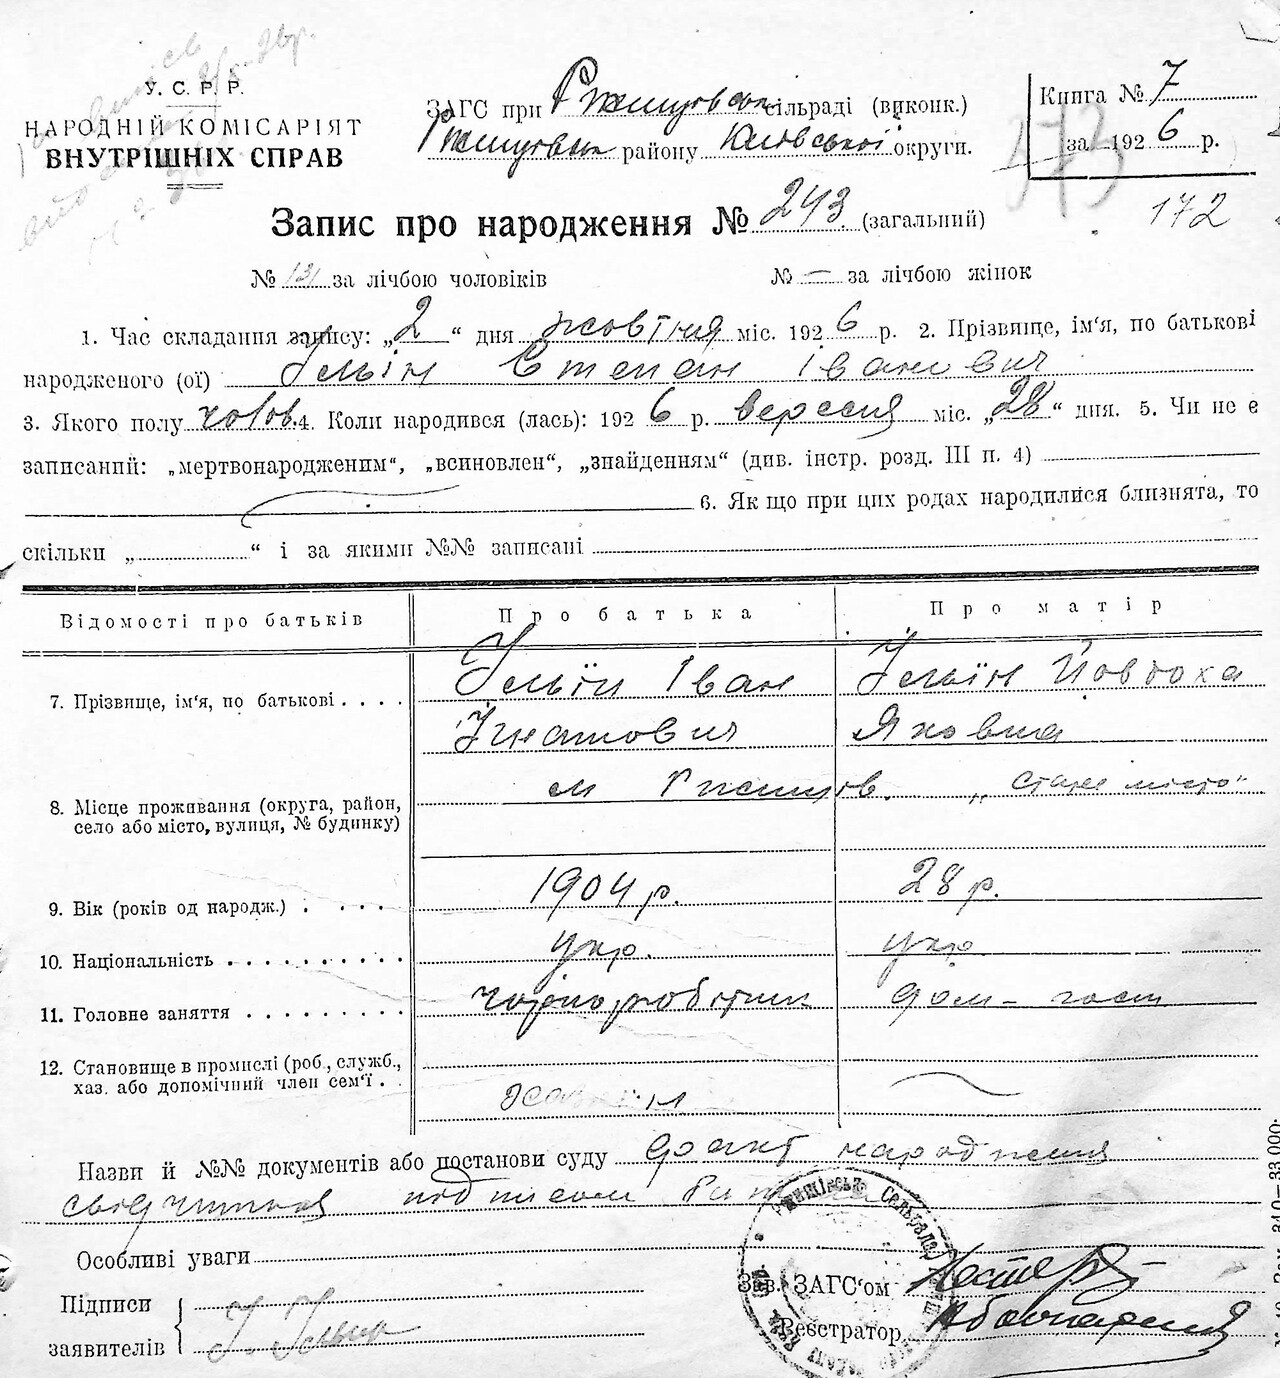 У. С. Р. Р.
НАРОДНІЙ КОМІСАРІЯТ
ВНУТРІШНІХ СПРАВ
ЗАГС при Ржищовськ сільраді (виконк.)
Ржищовськ району Київської округи.
Книга № 7
за 1926 р.
173
172
Запис про народження № 243. (загальний)
№ 131 за лічбою чоловіків № — за лічбою жінок
1. Час складання запису: „2“ дня жовтня міс. 1926 р. 2. Прізвище, ім'я, по батькові
народженого (ої) Ільїн Степан Іванович
3. Якого полу чолов. 4. Коли народився (лась): 1926 р. вересня міс. „28“ дня. 5. Чи не є
записаний: „мертвонародженим“, „всиновлен“, „знайденням“ (див. інстр. розд. III п. 4)
6. Як що при цих родах народилися близнята, то
скільки „ “ і за якими №№ записані
Відомості про батьків Про батька Про матір
7. Прізвище, ім'я, по батькові . . . . Ільїн Іван Ільїн Йовдоха
Ігнатович Яковна
8. Місце проживання (округа, район, м Ржищов. „Старе місто“
село або місто, вулиця, № будинку)
9. Вік (років од народж.) . . . . 1904 р. 28 р.
10. Національність . . . . . . . . . . укр. укр
11. Головне заняття . . . . . . . . . чорноробітник дом-госп
12. Становище в промислі (роб., служб.,
хаз. або допомічний член сем'ї . .
Назви й №№ документів або постанови суду факт народження
свідчиться підписом
Особливі уваги
Підписи
заявителів І. Ільїн
Зав. ЗАГС'ом
Реєстратор